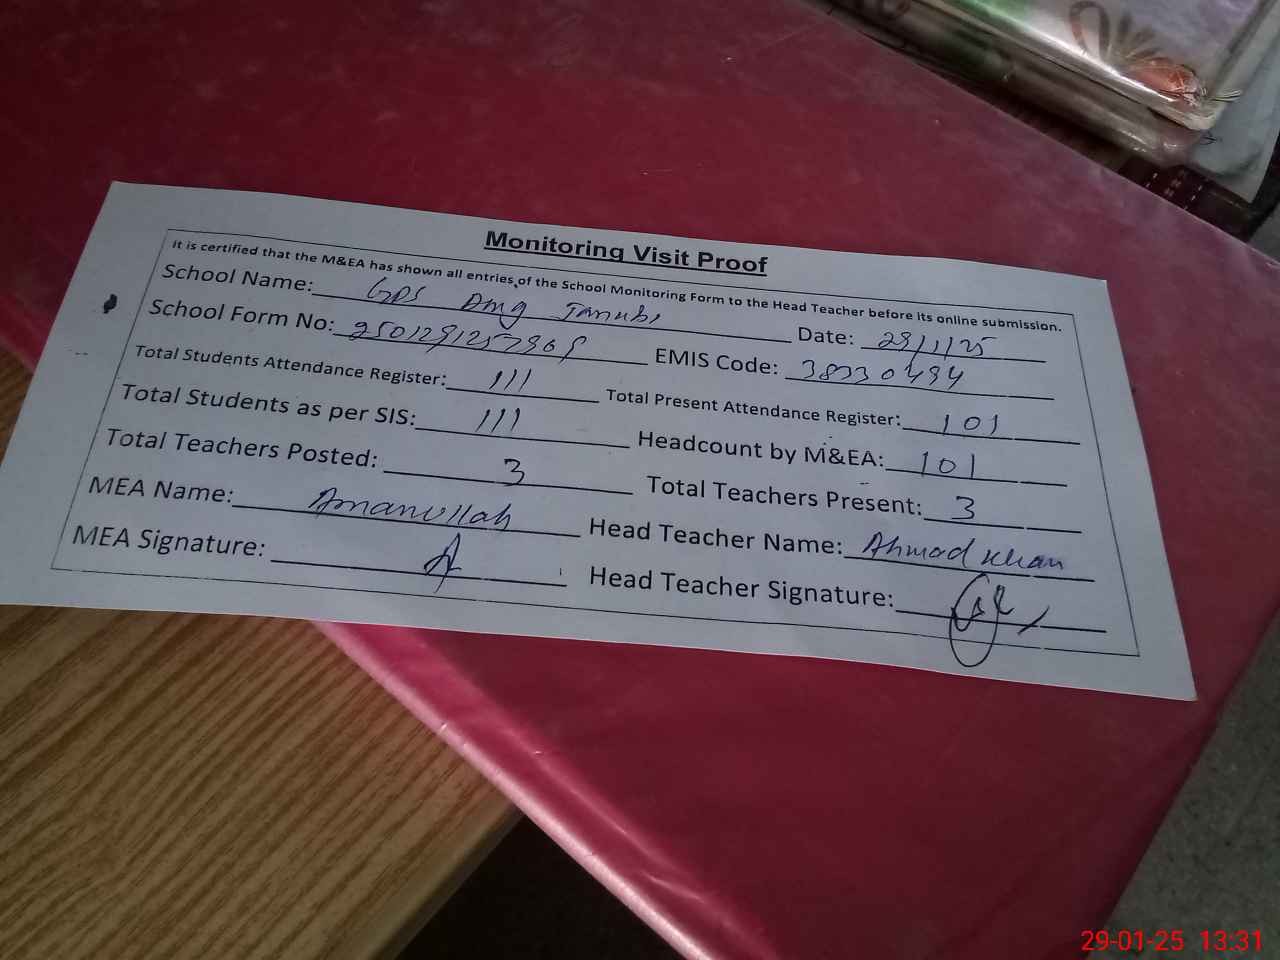 Monitoring Visit Proof
It is certified that the M&EA has shown all entries of the School Monitoring Form to the Head Teacher before its online submission.
School Name: GPS Dmg Janubi Date: 29/1/25
School Form No: EMIS Code: 38330494
Total Students Attendance Register: 111 Total Present Attendance Register: 101
Total Students as per SIS: 111 Headcount by M&EA: 101
Total Teachers Posted: 3 Total Teachers Present: 3
MEA Name: Amanullah Head Teacher Name: Ahmad Khan
MEA Signature: Head Teacher Signature:
29-01-25 13:31